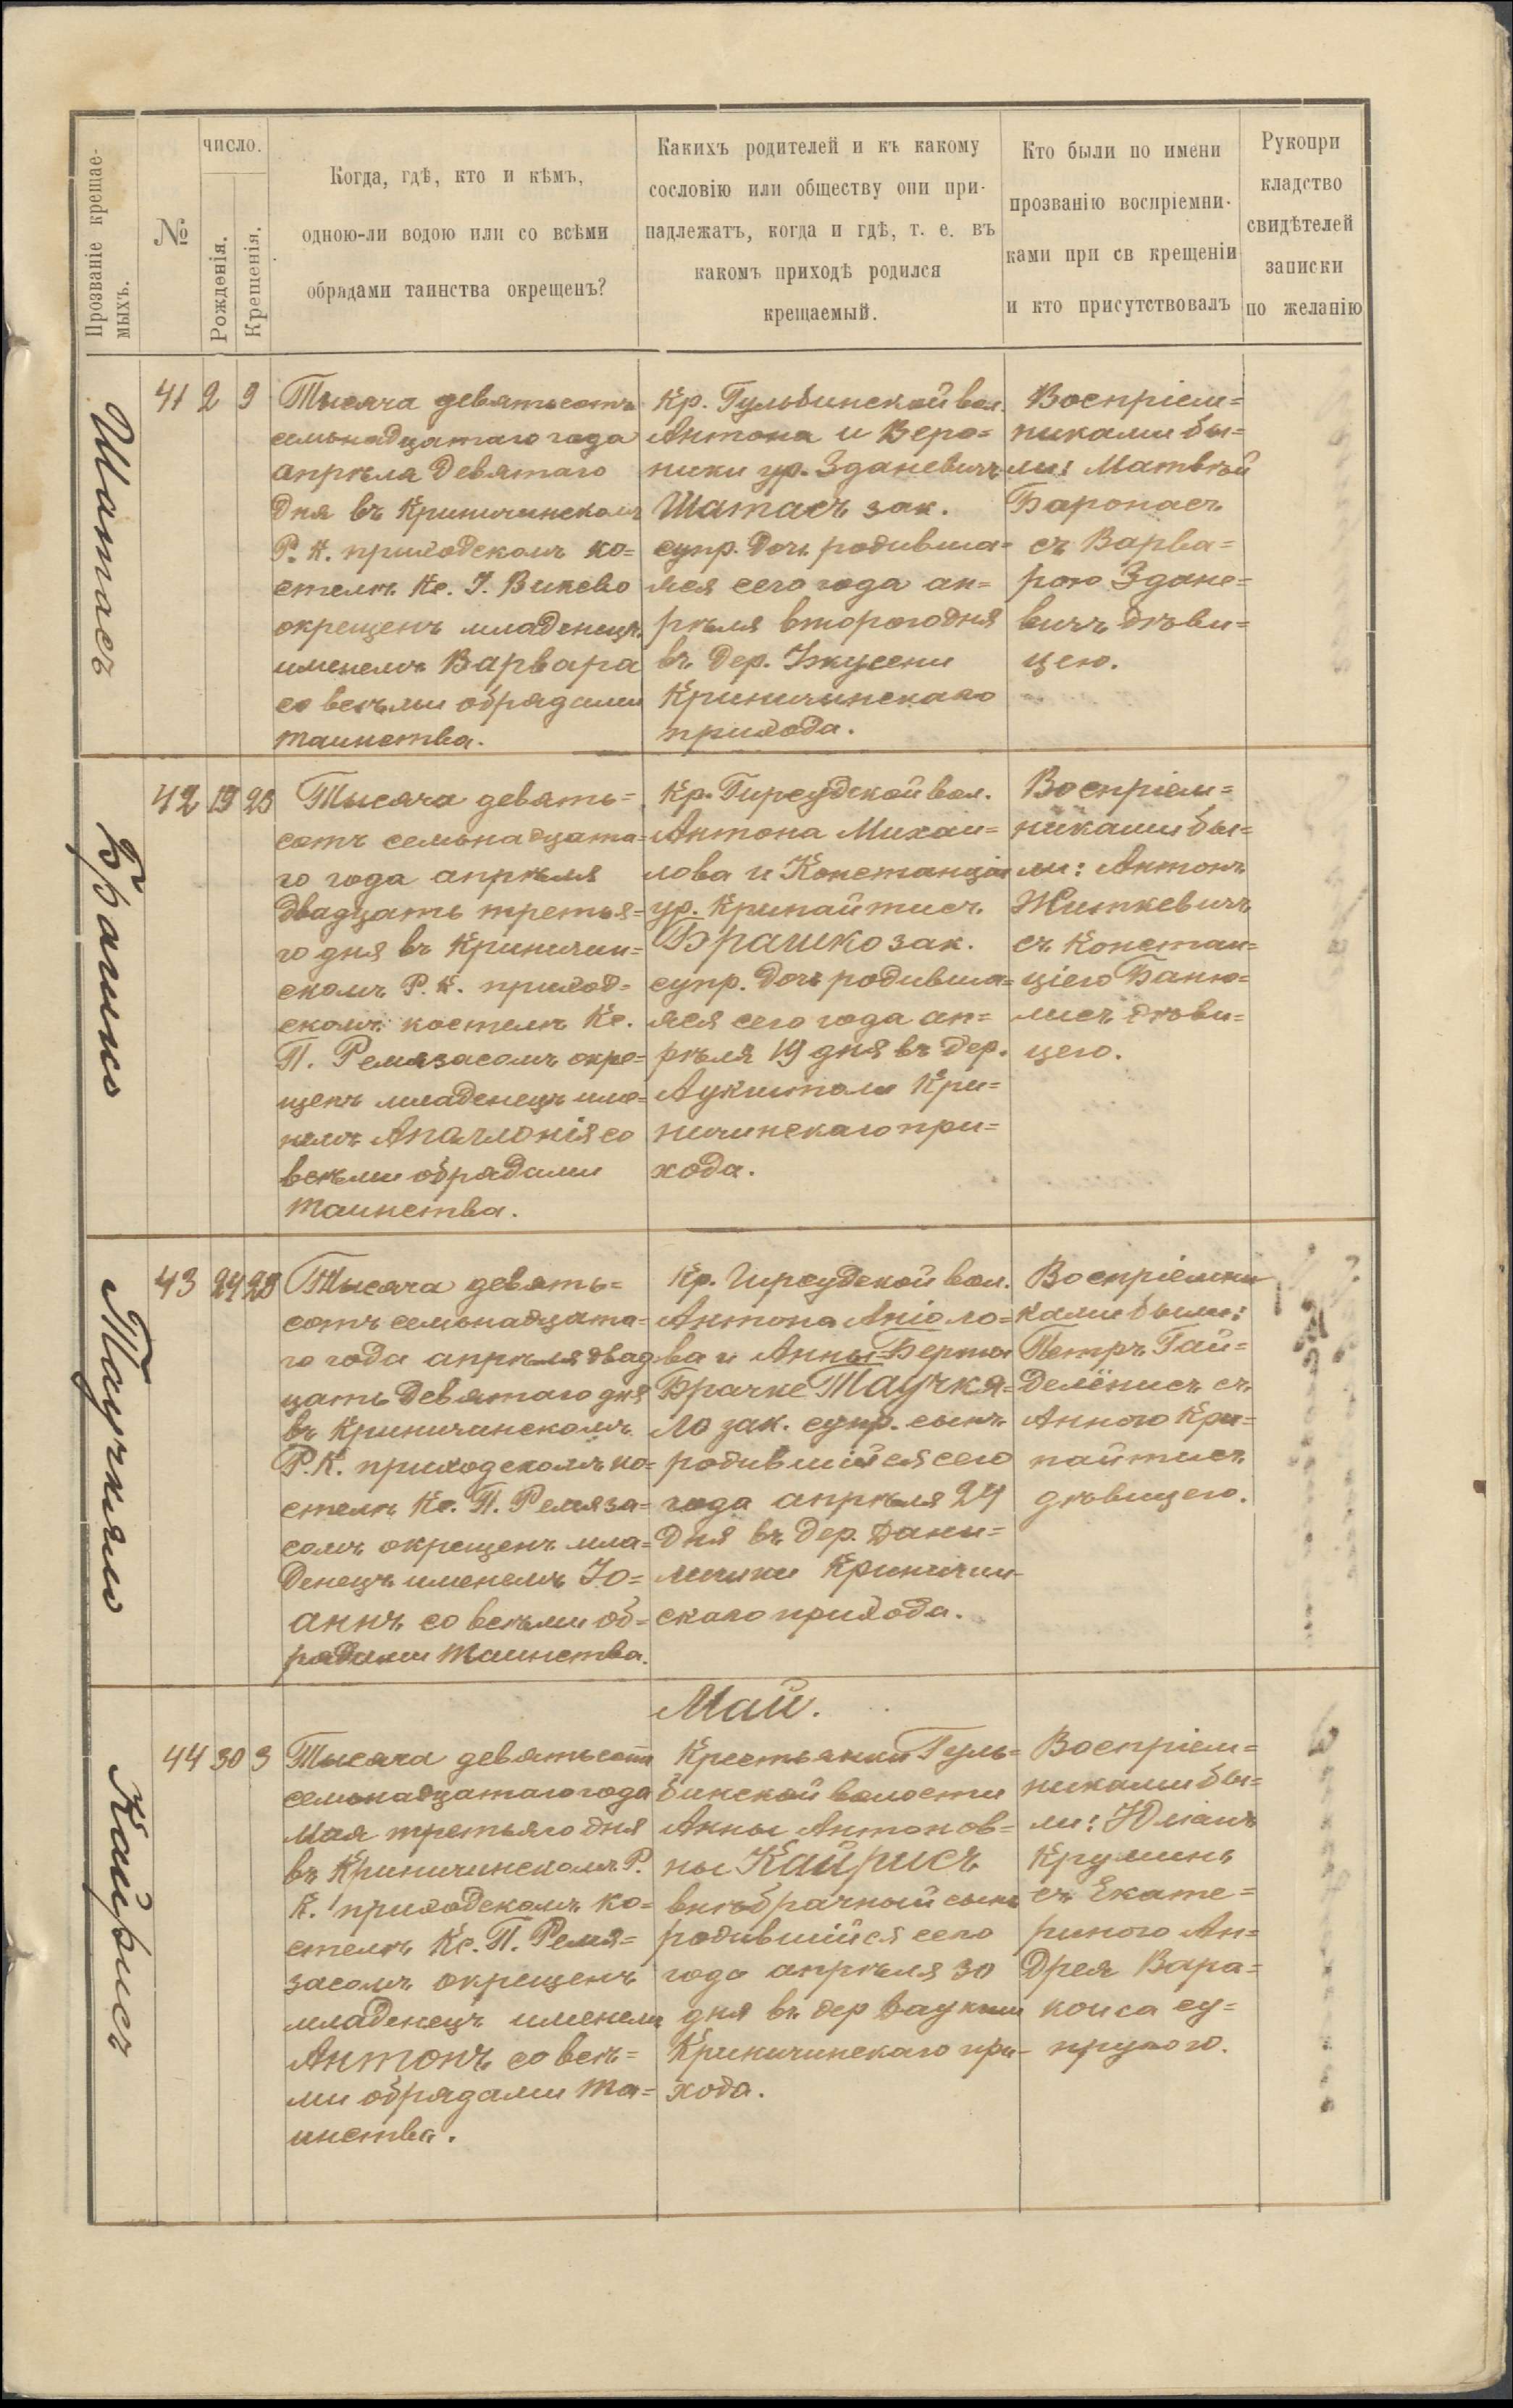 Прозваніе крещае-
мыхъ.
№
число.
Рожденія.
Крещенія.
Когда, гдѣ, кто и кѣмъ,
одною-ли водою или со всѣми
обрядами таинства окрещенъ?
Какихъ родителей и къ какому
сословію или обществу они при-
надлежатъ, когда и гдѣ, т. е. въ
какомъ приходѣ родился
крещаемый.
Кто были по имени
прозванію воспріемни-
ками при св крещеніи
и кто присутствовалъ
Рукопри
кладство
свидѣтелей
записки
по желанію
Шатасъ
41 2 9
Тысяча девятьсотъ
семьнадцатаго года
апрѣля девятаго
дня въ Криничинскомъ
Р. К. приходскомъ ко=
стелѣ Кс. І. Викево
окрещенъ младенецъ
именемъ Варвара
со всѣми обрядами
таинства.
Кр. Гульбинской вол.
Антона и Веро=
ники ур. Зданевичъ
Шатасъ зак.
супр. дочь родивша=
яся сего года ап=
рѣля второго дня
въ дер.
Криничинскаго
прихода.
Воспріем=
никами бы=
ли: Матвѣй
Баронасъ
съ Варва=
рою Здане=
вичъ дѣви=
цею.
Брашко
42 19 23
Тысяча девять=
сотъ семьнадцата=
го года апрѣля
двадцать третья=
го дня въ Криничин=
скомъ Р. К. приход=
скомъ костелѣ Кс.
П. Ремязасомъ окре=
щенъ младенецъ име=
немъ Апаллонія со
всѣми обрядами
таинства.
Кр. Гирсудской вол.
Антона Михаи=
лова и Констанціи
ур. Крипайтисъ
Брашко зак.
супр. дочь родивша=
яся сего года ап=
рѣля 19 дня въ дер.
Аукштоли Кри=
ничинскаго при=
хода.
Воспріем=
никами бы=
ли: Антонъ
Житкевичъ
съ Констан=
ціею Баню=
лисъ дѣви=
цею.
Таучкяло
43 24 29
Тысяча девять=
сотъ семьнадцата=
го года апрѣля двад
цать девятаго дня
въ Криничинскомъ
Р. К. приходскомъ ко=
стелѣ Кс. П. Ремяза=
сомъ окрещенъ мла=
денецъ именемъ Іо=
аннъ со всѣми об=
рядами таинства.
Кр. Гирсудской вол.
Антона Аніоло=
ва и Анны=Берты
Брачке Таучкя=
ло зак. супр. сынъ
родившійся сего
года апрѣля 24
дня въ дер. Дани=
лишки Криничин-
скаго прихода.
Воспріемни
ками были:
Петръ Гай=
делёнисъ съ
Анною Кри=
пайтисъ
дѣвицею.
Май.
Кайрисъ
44 30 3
Тысяча девятьсотъ
семьнадцатаго года
мая третьяго дня
въ Криничинскомъ Р.
К. приходскомъ ко=
стелѣ Кс. П. Ремя=
засомъ окрещенъ
младенецъ именемъ
Антонъ со всѣ=
ми обрядами та=
инства.
Крестьянки Гуль=
бинской волости
Анны Антонов=
ны Кайрисъ
внѣбрачный сынъ
родившійся сего
года апрѣля 30
дня въ дер
Криничинскаго при-
хода.
Воспріем=
никами бы=
ли: Юліанъ
Круминь
съ Екате=
риною Ан=
дрея Вара=
конса су=
пругою.